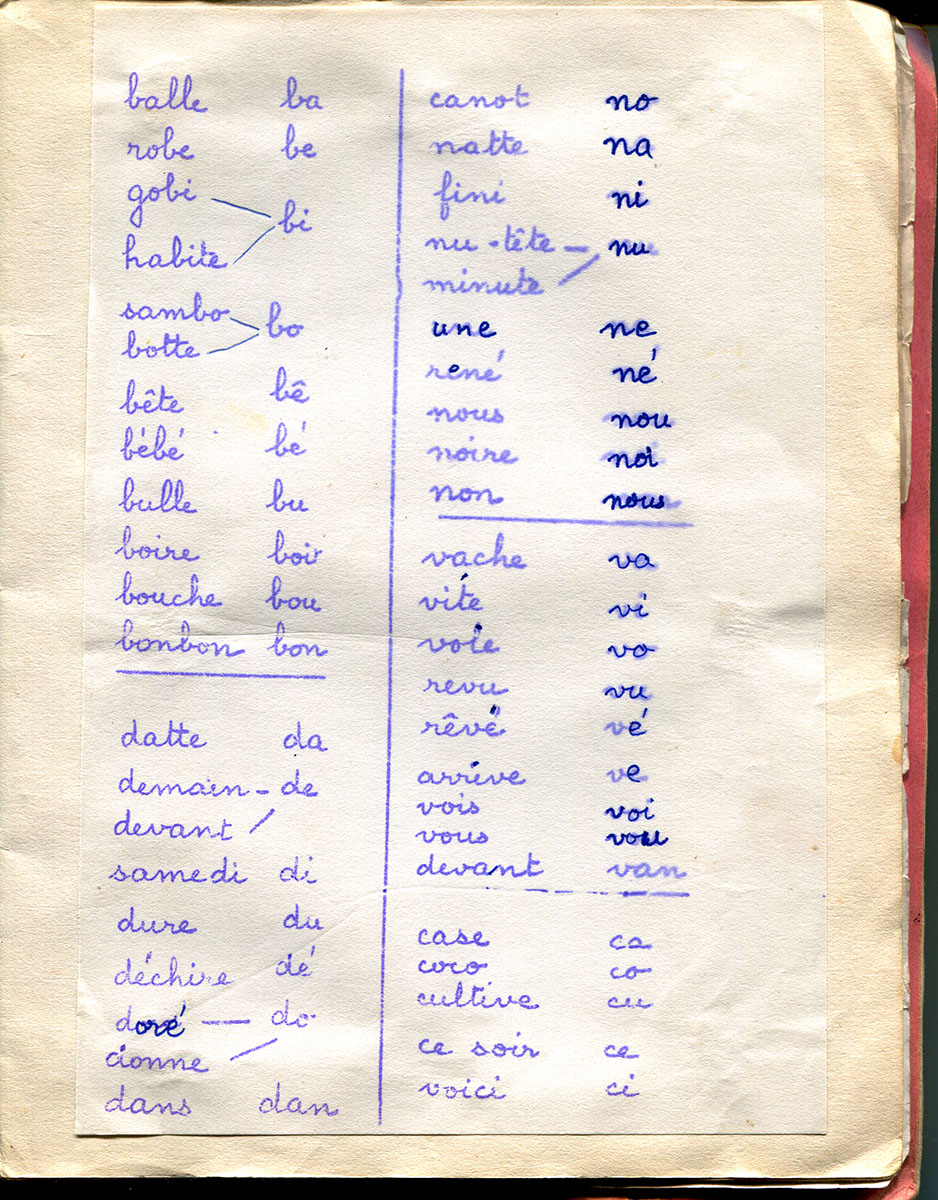 balle ba
robe be
gobi
bi
habite
sambo
bo
botte
bête bê
bébé bé
bulle bu
boire boi
bouche bou
bonbon bon
datte da
demain - de
devant
samedi di
dure du
déchire dé
doré — do
donne
dans dan
canot no
natte na
fini ni
nu-tête — nu
minute
une ne
rené né
nous nou
noire noi
non nous
vache va
vite vi
vole vo
revu vu
rêvé vé
arrive ve
vois voi
vous vou
devant van
case ca
coco co
cultive cu
ce soir ce
voici ci